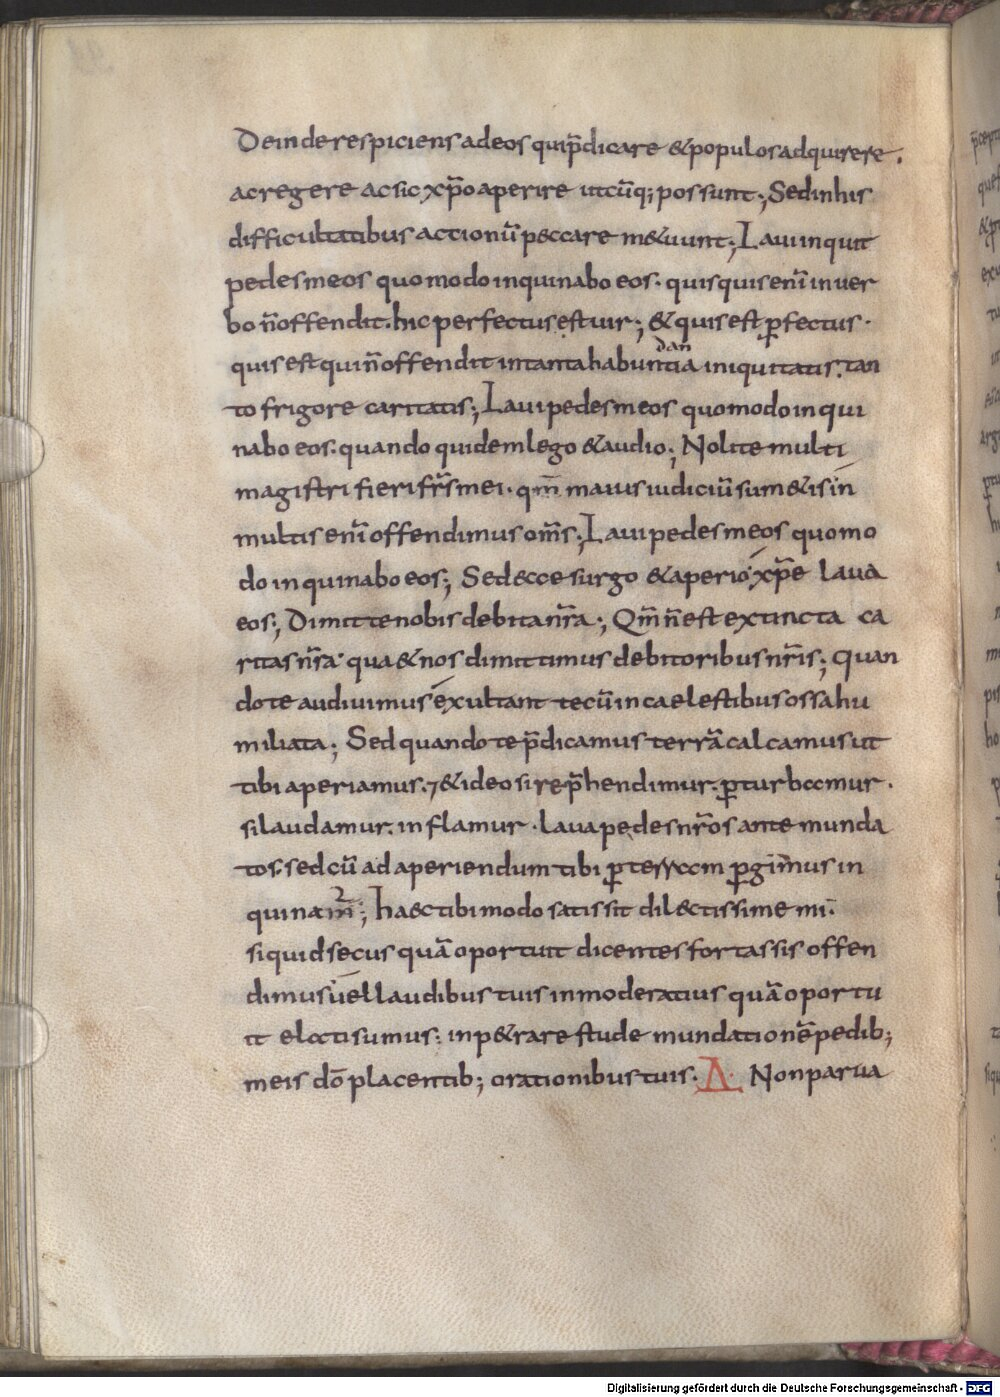 Deinde respiciens ad eos qui p̄dicare & populos adquirere.
ac regere ac sic xp̄o aperire utcūq; possunt; Sed in his
difficultatibus actionū peccare m&uunt; Laui inquit
pedes meos quomodo inquinabo eos. quisquis eni̅ in uer
bo n̄ offendit. hic perfectus est uir; & quis est ꝑfectus.
quis est qui n̄ offendit in tanta habuntia iniquitatis. tan
dan
to frigore caritatis; Laui pedes meos quomodo inqui
nabo eos. quando quidem lego & audio; Nolite multi
magistri fieri fr̄s mei. qm̄ maius iudiciū sum&is in
multis eni̅ offendimus om̄s; Laui pedes meos quomo
do inquinabo eos; Sed ecce surgo & aperio xp̄e laua
eos; Dimitte nobis debita nr̄a; Qm̄ n̄ est extincta ca
ritas nr̄a qua & nos dimittimus debitoribus nr̄is; Quan
do te audiuimus exultant tecū in caelestibus ossa hu
miliata; Sed quando te p̄dicamus terrā calcamus ut
tibi aperiamus. ⁊ & ideo si rep̄hendimur. ꝑturbamur.
si laudamur. inflamur. laua pedes nr̄os ante munda
tos. sed cū ad aperiendum tibi ꝑ terram ꝑgim̄us in
quinam̄; Haec tibi modo satis sit dilectissime mi.
si quid secus quā oportuit dicentes fortassis offen
dimus uel laudibus tuis inmoderatius quā oportu
it elati sumus. inp&rare stude mundationē pedib;
meis dō placentib; orationibus tuis. A Non parua
Digitalisierung gefördert durch die Deutsche Forschungsgemeinschaft - DFG